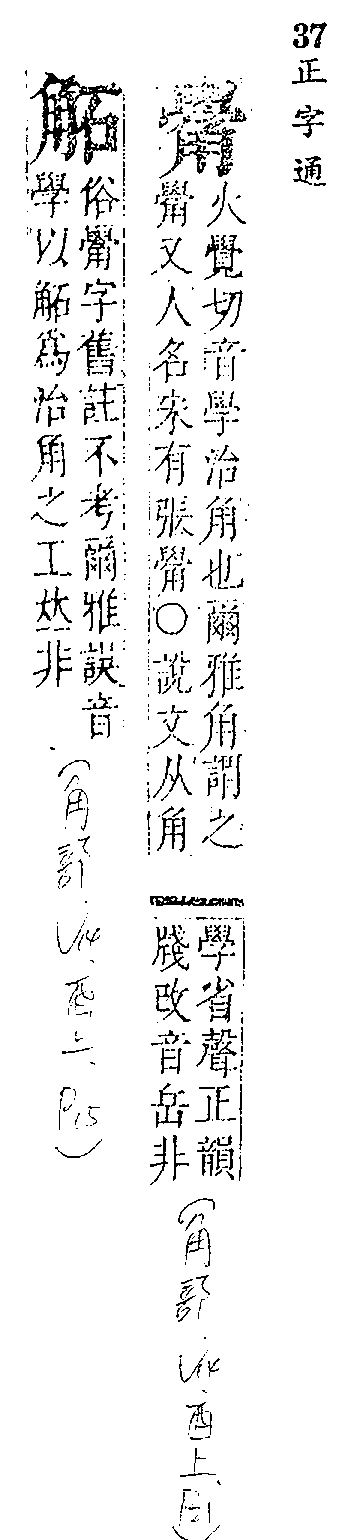 37
正字通
觷
火覺切音學治角也爾雅角謂之
觷又人名宋有張觷○說文从角
學省聲正韻
牋改音岳非
(角部,V14,酉上,
俗觷字舊註不考爾雅誤音
學以 為治角之工𠀤非
(角部,V14,酉上,P15)